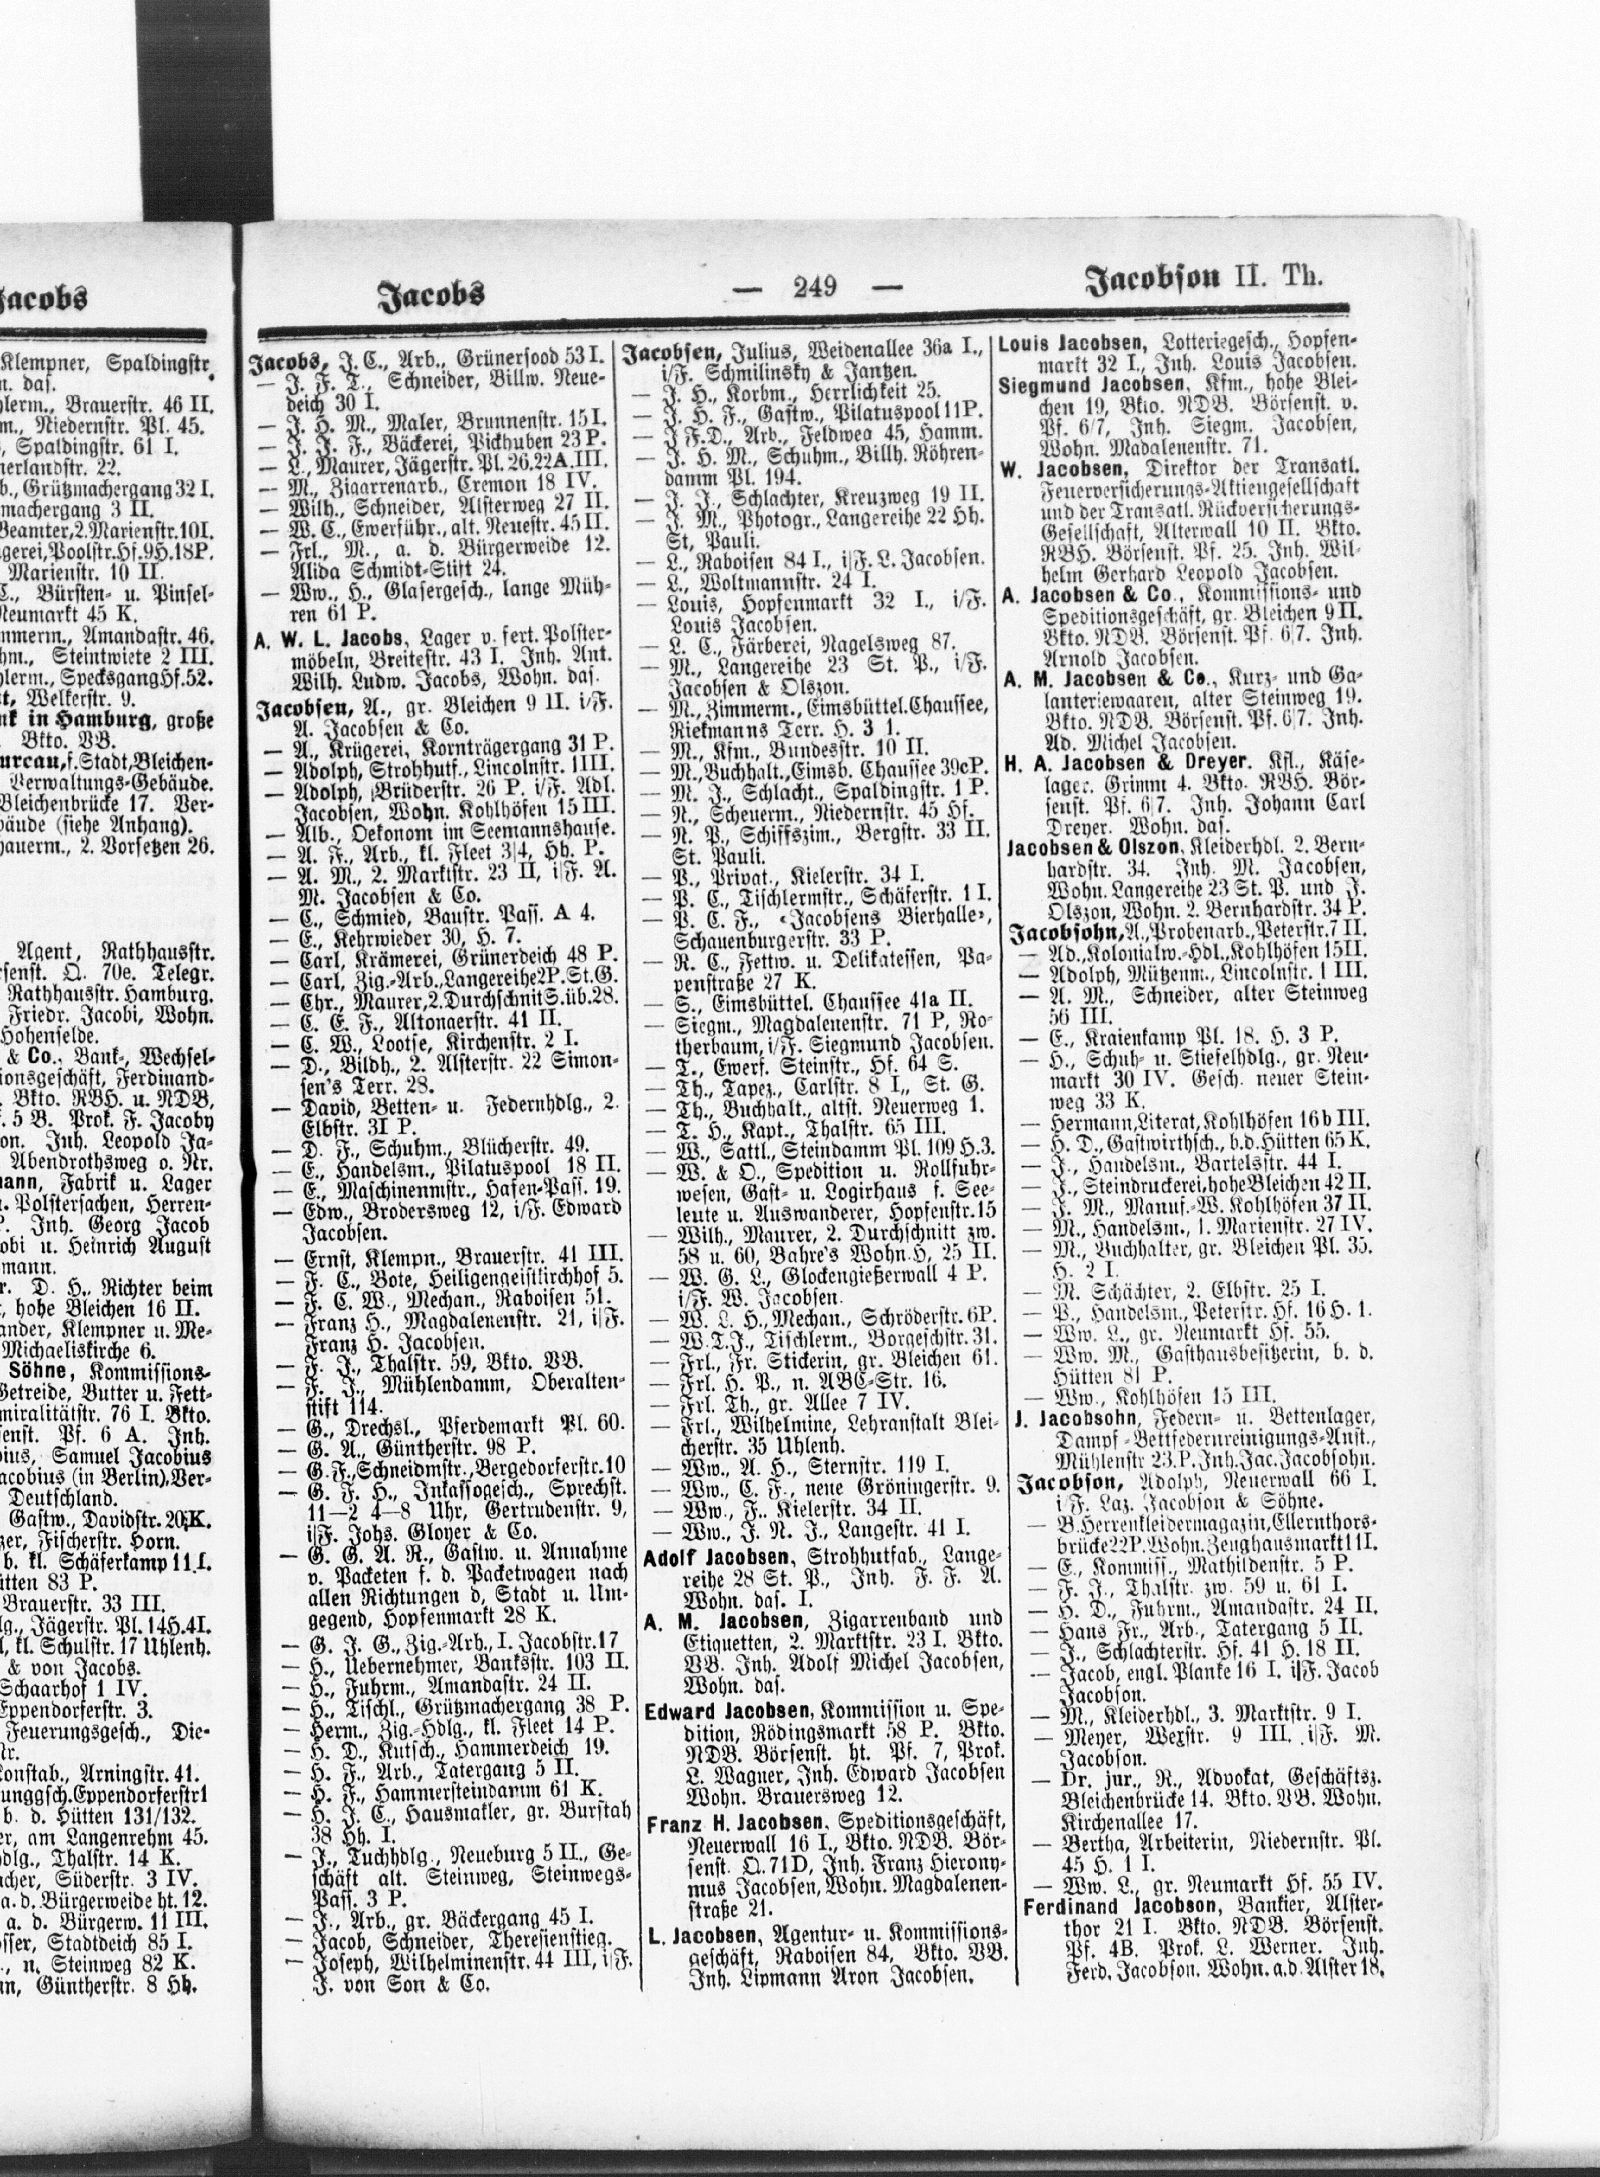 Jacobs
Klempner, Spaldingstr.
n. das.
hlerm., Brauerstr. 46 II.
m., Niedernstr. Pl. 45.
Spaldingstr. 61 I.
nerlandstr. 22.
b., Grützmachergang 32 I.
machergang 3 II.
Beamter, 2. Marienstr. 10 I.
gerei, Poolstr. Hf. 9 H. 18 P.
Marienstr. 10 II.
C., Bürsten- u. Pinsel-
Neumarkt 45 K.
mmerm., Amandastr. 46.
hm., Steintwiete 2 III.
hlerm., Specksgang Hf. 52.
Welkerstr. 9.
nk in Hamburg, große
Bkto. VB.
ureau, f. Stadt, Bleichen-
Verwaltungs-Gebäude.
Bleichenbrücke 17. Ver-
bäude (siehe Anhang).
auerm., 2. Vorsetzen 26.
Agent, Rathhausstr.
senst. Q. 70e. Telegr.
Rathhausstr. Hamburg.
Friedr. Jacobi, Wohn.
Hohenfelde.
& Co., Bank-, Wechsel-
ionsgeschäft, Ferdinand-
Bkto. RBH. u. NDB,
. 5 B. Prok. F. Jacoby
on. Inh. Leopold Ja-
Abendrothsweg o. Nr.
ann, Fabrik u. Lager
. Polstersachen, Herren-
P. Inh. Georg Jacob
obi u. Heinrich August
mann.
r. D. H., Richter beim
, hohe Bleichen 16 II.
ander, Klempner u. Me-
Michaeliskirche 6.
Söhne, Kommissions-
Getreide, Butter u. Fett-
miralitätstr. 76 I. Bkto.
senst. Pf. 6 A. Inh.
bius, Samuel Jacobius
acobius (in Berlin). Ver-
Deutschland.
Gastw., Davidstr. 20, K.
zer, Fischerstr. Horn.
b. kl. Schäferkamp 11 I.
ütten 83 P.
Brauerstr. 33 III.
lg., Jägerstr. Pl. 14 H. 4 I.
l, kl. Schulstr. 17 Uhlenh.
& von Jacobs.
Schaarhof 1 IV.
Eppendorferstr. 3.
Feuerungsgesch., Die-
tr.
Konstab., Arningstr. 41.
unggsch. Eppendorferstr 1
b. d. Hütten 131/132.
er, am Langenrehm 45.
dlg., Thalstr. 14 K.
acher, Süderstr. 3 IV.
a. d. Bürgerweide ht. 12.
a. d. Bürgerw. 11 III.
osser, Stadtdeich 85 I.
., n. Steinweg 82 K.
an, Güntherstr. 8 Hh.
Jacobs — 249 — Jacobson II. Th.
Jacobs, J. C., Arb., Grünersood 53 I.
— J. F. T., Schneider, Billw. Neue-
deich 30 I.
— J. H. M., Maler, Brunnenstr. 15 I.
— J. J. F., Bäckerei, Pickhuben 23 P.
— L., Maurer, Jägerstr. Pl. 26. 22 A. III.
— M., Zigarrenarb., Cremon 18 IV.
— Wilh., Schneider, Alsterweg 27 II.
— W. C., Ewerführ., alt. Neuestr. 45 II.
— Frl., M., a. d. Bürgerweide 12.
Alida Schmidt-Stift 24.
— Ww., H., Glasergesch., lange Müh-
ren 61 P.
A. W. L. Jacobs, Lager v. fert. Polster-
möbeln, Breitestr. 43 I. Inh. Ant.
Wilh. Ludw. Jacobs, Wohn. das.
Jacobsen, A., gr. Bleichen 9 II. i/F.
A. Jacobsen & Co.
— A., Krügerei, Kornträgergang 31 P.
— Adolph, Strohhutf., Lincolnstr. 1 III.
— Adolph, Brüderstr. 26 P. i/F. Adl.
Jacobsen, Wohn. Kohlhöfen 15 III.
— Alb., Oekonom im Seemannshause.
— A. F., Arb., kl. Fleet 3/4, Hh. P.
— A. M., 2. Marktstr. 23 II, i/F. A.
M. Jacobsen & Co.
— C., Schmied, Baustr. Pass. A 4.
— E., Kehrwieder 30, H. 7.
— Carl, Krämerei, Grünerdeich 48 P.
— Carl, Zig.-Arb., Langereihe 2 P. St. G.
— Chr., Maurer, 2. Durchschnit S. üb. 28.
— C. E. F., Altonaerstr. 41 II.
— C. W., Lootse, Kirchenstr. 2 I.
— D., Bildh., 2. Alsterstr. 22 Simon-
sen's Terr. 28.
— David, Betten- u. Federnhdlg., 2.
Elbstr. 31 P.
— D. F., Schuhm., Blücherstr. 49.
— E., Handelsm., Pilatuspool 18 II.
— E., Maschinenmstr., Hafen-Pass. 19.
— Edw., Brodersweg 12, i/F. Edward
Jacobsen.
— Ernst, Klempn., Brauerstr. 41 III.
— F. C., Bote, Heiligengeistkirchhof 5.
— F. C. W., Mechan., Raboisen 51.
— Franz H., Magdalenenstr. 21, i/F.
Franz H. Jacobsen.
— F. J., Thalstr. 59, Bkto. VB.
— F. J., Mühlendamm, Oberalten-
stift 114.
— G., Drechsl., Pferdemarkt Pl. 60.
— G. A., Güntherstr. 98 P.
— G. F., Schneidmstr., Bergedorferstr. 10
— G. F. H., Inkassogesch., Sprechst.
11—2 4—8 Uhr, Gertrudenstr. 9,
i/F. Johs. Gloyer & Co.
— G. G. A. R., Gastw. u. Annahme
v. Packeten f. d. Packetwagen nach
allen Richtungen d. Stadt u. Um-
gegend, Hopfenmarkt 28 K.
— G. J. G., Zig.-Arb., I. Jacobstr. 17
— H., Uebernehmer, Banksstr. 103 II.
— H., Fuhrm., Amandastr. 24 II.
— H., Tischl., Grützmachergang 38 P.
— Herm., Zig.-Hdlg., kl. Fleet 14 P.
— H. D., Kutsch., Hammerdeich 19.
— H. F., Arb., Tatergang 5 II.
— H. F., Hammersteindamm 61 K.
— H. J. C., Hausmakler, gr. Burstah
38 Hh. I.
— J., Tuchhdlg., Neueburg 5 II., Ge-
schäft alt. Steinweg, Steinwegs-
Pass. 3 P.
— J., Arb., gr. Bäckergang 45 I.
— Jacob, Schneider, Theresienstieg.
— Joseph, Wilhelminenstr. 44 III, i/F.
J. von Son & Co.
Jacobsen, Julius, Weidenallee 36a I.,
i/F. Schmilinsky & Jantzen.
— J. H., Korbm., Herrlichkeit 25.
— J. H. F., Gastw., Pilatuspool 11 P.
— J F. D., Arb., Feldweg 45, Hamm.
— J. H. M., Schuhm., Billh. Röhren-
damm Pl. 194.
— J. J., Schlachter, Kreuzweg 19 II.
— J. M., Photogr., Langereihe 22 Hh.
St, Pauli.
— L., Raboisen 84 I., i/F. L. Jacobsen.
— L., Woltmannstr. 24 I.
— Louis, Hopfenmarkt 32 I., i/F.
Louis Jacobsen.
— L. C., Färberei, Nagelsweg 87.
— M., Langereihe 23 St. P., i/F.
Jacobsen & Olszon.
— M., Zimmerm., Eimsbüttel. Chaussee,
Riekmanns Terr. H. 3 1.
— M., Kfm., Bundesstr. 10 II.
— M., Buchhalt., Eimsb. Chaussee 39c P.
— M. J., Schlacht., Spaldingstr. 1 P.
— N., Scheuerm., Niedernstr. 45 Hf.
— N. P., Schiffszim., Bergstr. 33 II.
St. Pauli.
— P., Privat., Kielerstr. 34 I.
— P. C., Tischlermstr., Schäferstr. 1 I.
— P. C. F., «Jacobsens Bierhalle»,
Schauenburgerstr. 33 P.
— R. C., Fettw. u. Delikatessen, Pa-
penstraße 27 K.
— S., Eimsbüttel. Chaussee 41a II.
— Siegm., Magdalenenstr. 71 P, Ro-
therbaum, i/F. Siegmund Jacobsen.
— T., Ewerf. Steinstr., Hf. 64 S.
— Th., Tapez., Carlstr. 8 I., St. G.
— Th., Buchhalt., altst. Neuerweg 1.
— T. H., Kapt., Thalstr. 65 III.
— W., Sattl., Steindamm Pl. 109 H. 3.
— W. & O., Spedition u. Rollfuhr-
wesen, Gast- u. Logirhaus f. See-
leute u. Auswanderer, Hopfenstr. 15
— Wilh., Maurer, 2. Durchschnitt zw.
58 u. 60, Bahre's Wohn. H, 25 II.
— W. G. L., Glockengießerwall 4 P.
i/F. W. Jacobsen.
— W. L. H., Mechan., Schröderstr. 6 P.
— W. T. J., Tischlerm., Borgeschstr. 31.
— Frl., Fr. Stickerin, gr. Bleichen 61.
— Frl. H. P., n. ABC-Str. 16.
— Frl. Th., gr. Allee 7 IV.
— Frl., Wilhelmine, Lehranstalt Blei-
cherstr. 35 Uhlenh.
— Ww., A. H., Sternstr. 119 I.
— Ww., C. F., neue Gröningerstr. 9.
— Ww., F., Kielerstr. 34 II.
— Ww., J. N. J., Langestr. 41 I.
Adolf Jacobsen, Strohhutfab., Lange-
reihe 28 St. P., Inh. F. F. A.
Wohn. das. I.
A. M. Jacobsen, Zigarrenband und
Etiquetten, 2. Marktstr. 23 I. Bkto.
VB. Inh. Adolf Michel Jacobsen,
Wohn. das.
Edward Jacobsen, Kommission u. Spe-
dition, Rödingsmarkt 58 P. Bkto.
NDB. Börsenst. ht. Pf. 7, Prok.
L. Wagner, Inh. Edward Jacobsen
Wohn. Brauersweg 12.
Franz H. Jacobsen, Speditionsgeschäft,
Neuerwall 16 I., Bkto. NDB. Bör-
senst. Q. 71D, Inh. Franz Hierony-
mus Jacobsen, Wohn. Magdalenen-
straße 21.
L. Jacobsen, Agentur- u. Kommissions-
geschäft, Raboisen 84, Bkto. VB.
Inh. Lipmann Aron Jacobsen.
Louis Jacobsen, Lotteriegesch., Hopfen-
markt 32 I., Inh. Louis Jacobsen.
Siegmund Jacobsen, Kfm., hohe Blei-
chen 19, Bkto. NDB. Börsenst. v.
Pf. 6/7, Inh. Siegm. Jacobsen,
Wohn. Madalenenstr. 71.
W. Jacobsen, Direktor der Transatl.
Feuerversicherungs-Aktiengesellschaft
und der Transatl. Rückversicherungs-
Gesellschaft, Alterwall 10 II. Bkto.
RBH. Börsenst. Pf. 25. Inh. Wil-
helm Gerhard Leopold Jacobsen.
A. Jacobsen & Co., Kommissions- und
Speditionsgeschäft, gr. Bleichen 9 II.
Bkto. NDB. Börsenst. Pf. 6/7. Inh.
Arnold Jacobsen.
A. M. Jacobsen & Co., Kurz- und Ga-
lanteriewaaren, alter Steinweg 19.
Bkto. NDB. Börsenst. Pf. 6/7. Inh.
Ad. Michel Jacobsen.
H. A. Jacobsen & Dreyer. Kfl., Käse-
lager. Grimm 4. Bkto. RBH. Bör-
senst. Pf. 6/7. Inh. Johann Carl
Dreyer. Wohn. das.
Jacobsen & Olszon, Kleiderhdl. 2. Bern-
hardstr. 34. Inh. M. Jacobsen,
Wohn. Langereihe 23 St. P. und J.
Olszon, Wohn. 2. Bernhardstr. 34 P.
Jacobsohn, A., Probenarb., Peterstr. 7 II.
— Ad., Kolonialw.-Hdl., Kohlhöfen 15 II.
— Adolph, Mützenm., Lincolnstr. 1 III.
— A. M., Schneider, alter Steinweg
56 III.
— E., Kraienkamp Pl. 18. H. 3 P.
— H., Schuh- u. Stiefelhdlg., gr. Neu-
markt 30 IV. Gesch. neuer Stein-
weg 33 K.
— Hermann, Literat, Kohlhöfen 16 b III.
— H. D., Gastwirthsch., b. d. Hütten 65 K.
— J., Handelsm., Bartelsstr. 44 I.
— J., Steindruckerei, hohe Bleichen 42 II.
— J. M., Manuf.-W. Kohlhöfen 37 II.
— M., Handelsm., 1. Marienstr. 27 IV.
— M., Buchhalter, gr. Bleichen Pl. 35.
H. 2 I.
— M. Schächter, 2. Elbstr. 25 I.
— P., Handelsm., Peterstr. Hf. 16 H. 1.
— Ww. L., gr. Neumarkt Hf. 55.
— Ww. M., Gasthausbesitzerin, b. d.
Hütten 81 P.
— Ww., Kohlhöfen 15 III.
J. Jacobsohn, Federn- u. Bettenlager,
Dampf-Bettfedernreinigungs-Anst.,
Mühlenstr 23. P. Inh. Jac. Jacobsohn.
Jacobson, Adolph, Neuerwall 66 I.
i/F. Laz. Jacobson & Söhne.
— B. Herrenkleidermagazin, Ellernthors-
brücke 22 P. Wohn. Zeughausmarkt 11 I.
— E., Kommiss., Mathildenstr. 5 P.
— F. J., Thalstr. zw. 59 u. 61 I.
— H. D., Fuhrm., Amandastr. 24 II.
— Hans Fr., Arb., Tatergang 5 II.
— J., Schlachterstr. Hf. 41 H. 18 II.
— Jacob, engl. Planke 16 I. i/F. Jacob
Jacobson.
— M., Kleiderhdl., 3. Marktstr. 9 I.
— Meyer, Wexstr. 9 III. i/F. M.
Jacobson.
— Dr. jur., R., Advokat, Geschäftsz.
Bleichenbrücke 14. Bkto. VB. Wohn.
Kirchenallee 17.
— Bertha, Arbeiterin, Niedernstr. Pl.
45 H. 1 I.
— Ww. L., gr. Neumarkt Hf. 55 IV.
Ferdinand Jacobson, Bankier, Alster-
thor 21 I. Bkto. NDB. Börsenst.
Pf. 4B. Prok. L. Werner. Inh.
Ferd. Jacobson. Wohn. a. d. Alster 18.